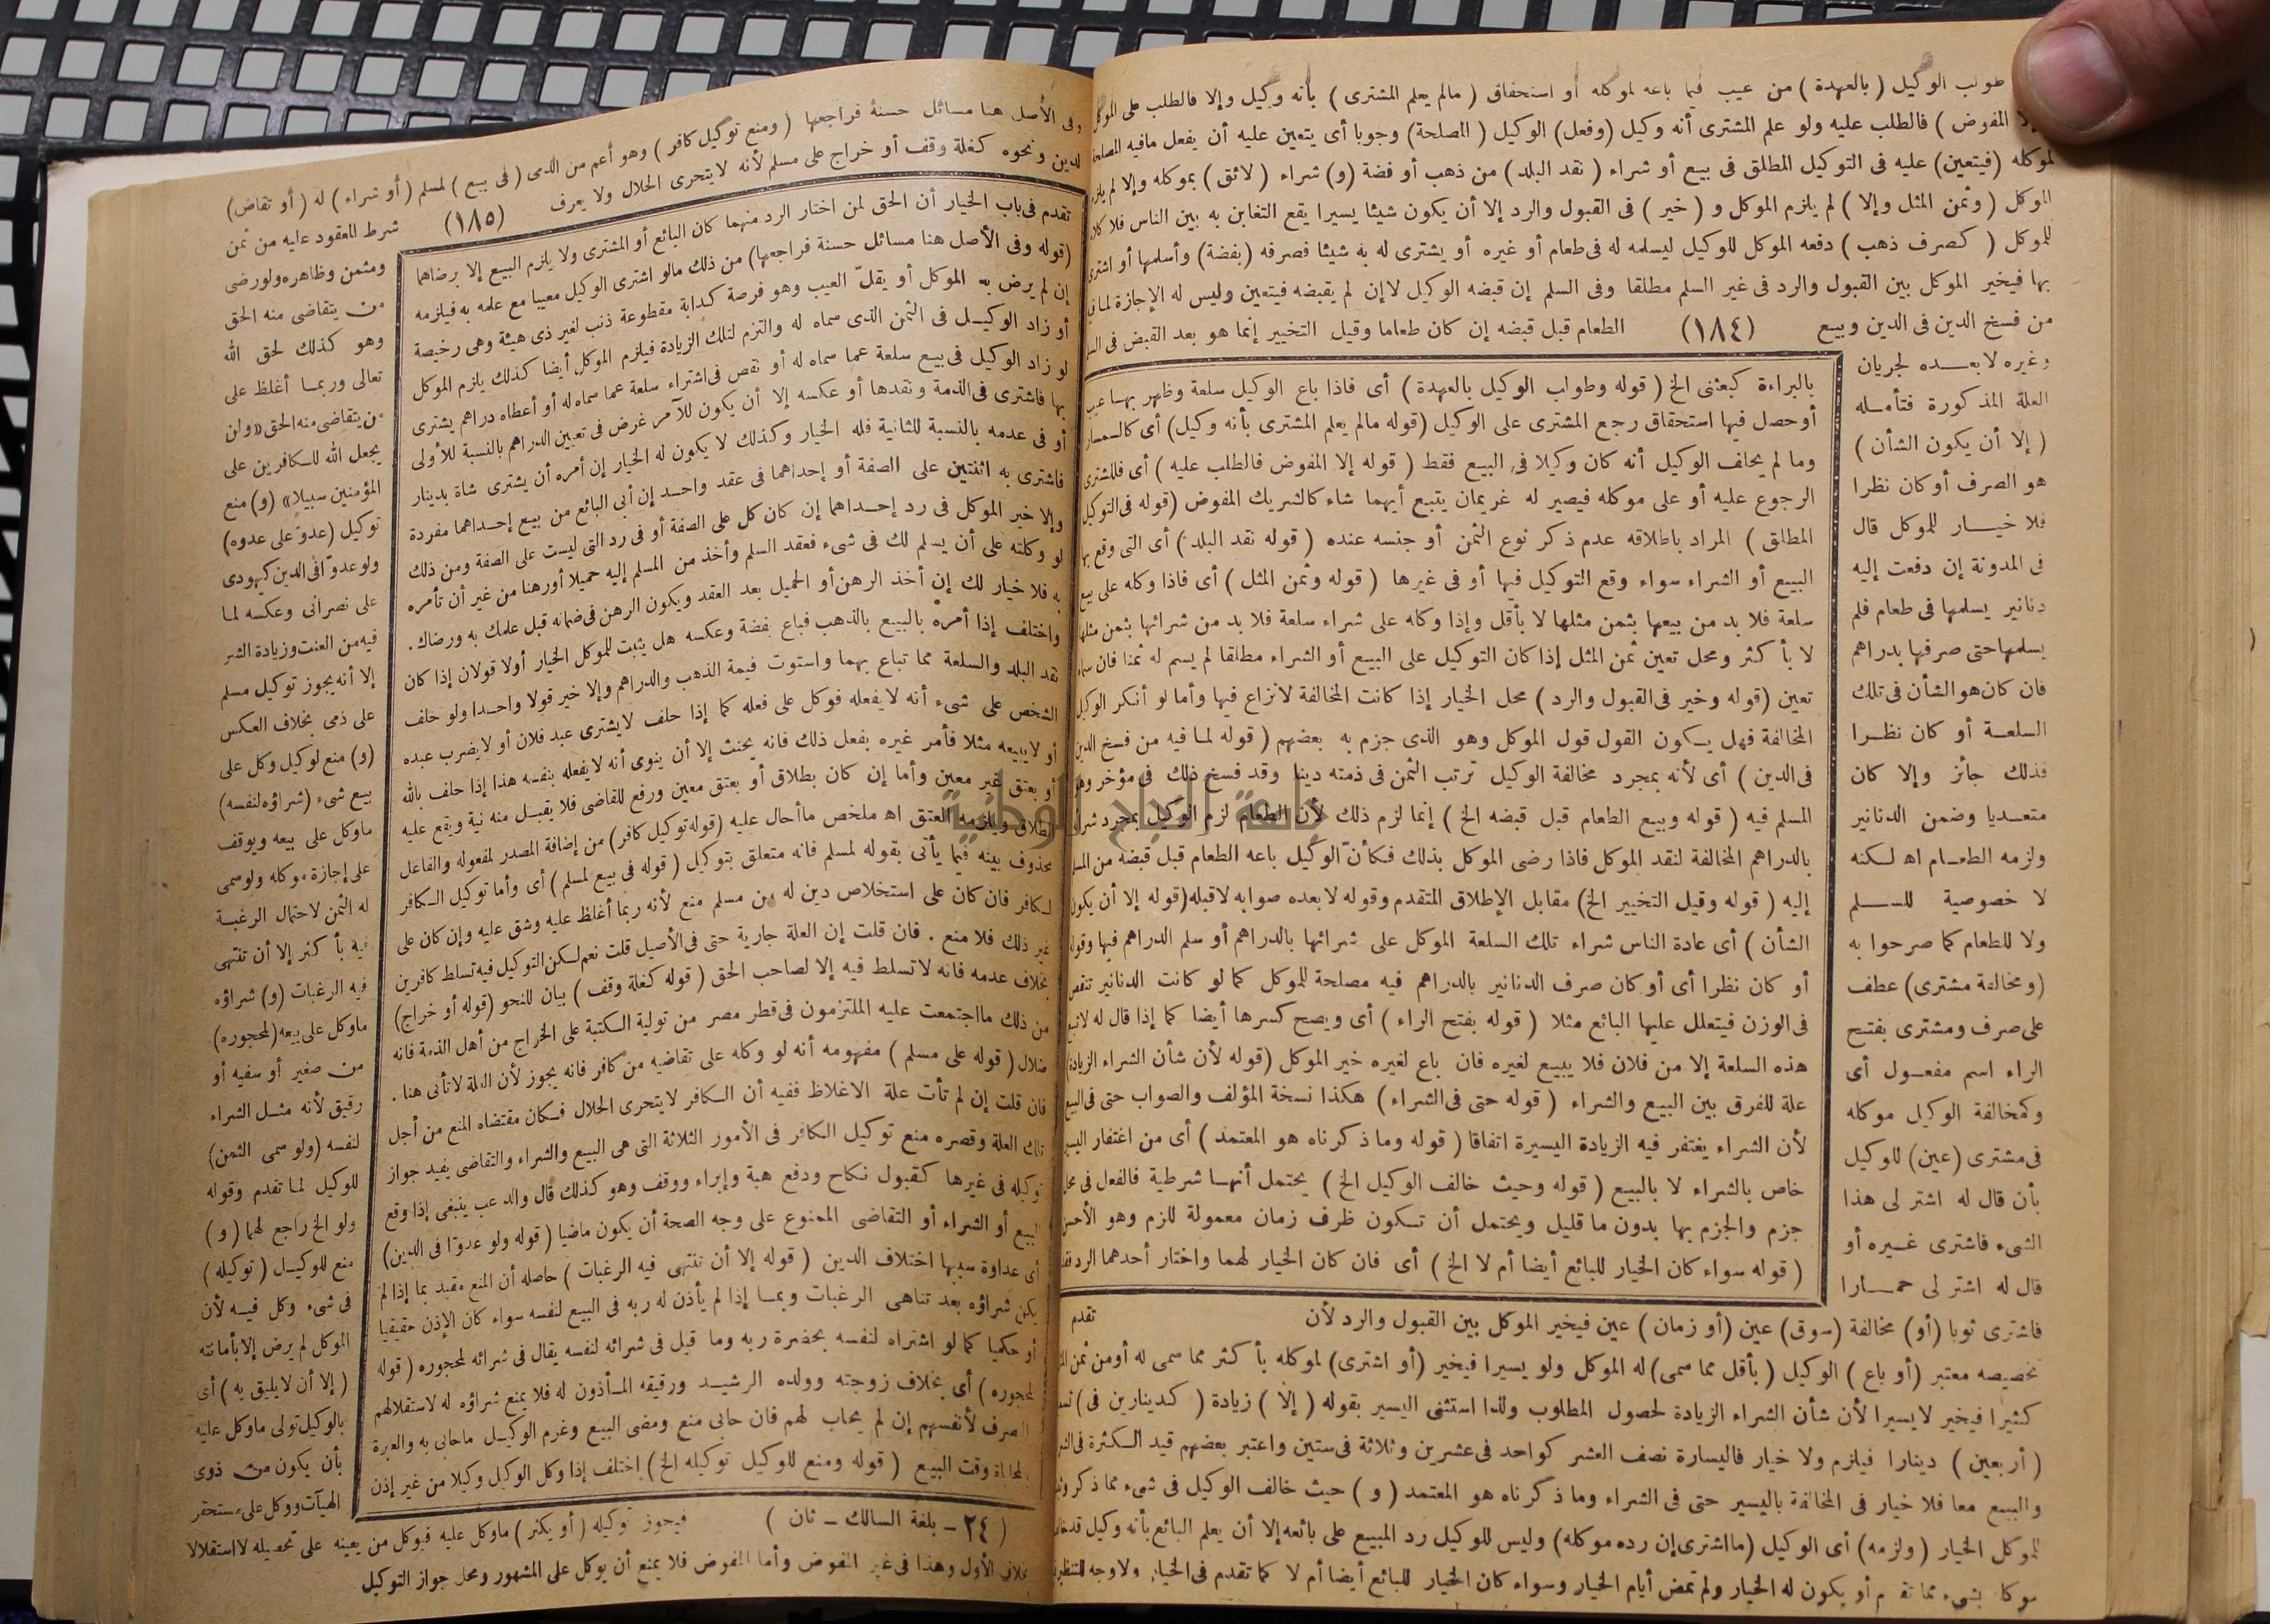 طولب الوكيل (بالعهدة) من عيب فيما باعه لموكله أو استحقاق (مالم يعلم المشترى) بأنه وكيل وإلا فالطلب على الموكل
إلا المفوض) فالطلب عليه ولو علم المشترى أنه وكيل (وفعل) الوكيل (المصلحة) وجوبا أى يتعين عليه أن يفعل مافيه المصلحة
لموكله (فيتعين) عليه فى التوكيل المطلق فى بيع أو شراء (نقد البلد) من ذهب أو فضة (و) شراء (لائق) بموكله وإلا لم يلزم
الموكل (وثمن المثل وإلا) لم يلزم الموكل و (خير) فى القبول والرد إلا أن يكون شيئا يسيرا يقع التغابن به بين الناس فلا كلام
للموكل (كصرف ذهب) دفعه الموكل للوكيل ليسلمه له فى طعام أو غيره أو يشترى له به شيئا فصرفه (بفضة) وأسلمها أو اشترى
بها فيخير الموكل بين القبول والرد فى غير السلم مطلقا وفى السلم إن قبضه الوكيل لا إن لم يقبضه فيتعين وليس له الإجازة لما فى
من فسخ الدين فى الدين وبيع (١٨٤) الطعام قبل قبضه إن كان طعاما وقيل التخيير إنما هو بعد القبض فى
وغيره لا بعده لجريان
العلة المذكورة فتأمله
(إلا أن يكون الشأن)
هو الصرف أو كان نظرا
فلا خيار للموكل قال
فى المدونة إن دفعت إليه
دنانير يسلمها فى طعام فلم
يسلمها حتى صرفها بدراهم
فان كان هو الشأن فى تلك
السلعة أو كان نظرا
فذلك جائز وإلا كان
متعديا وضمن الدنانير
ولزمه الطعام اه لكنه
لا خصوصية للسلم
ولا للطعام كما صرحوا به
(ومخالفة مشترى) عطف
على صرف ومشترى بفتح
الراء اسم مفعول أى
وكمخالفة الوكيل موكله
فى مشترى (عين) للوكيل
بأن قال له اشتر لى هذا
الشىء فاشترى غيره أو
قال له اشتر لى حمارا
فاشترى ثوبا (أو) مخالفة (سوق) عين (أو زمان) عين فيخير الموكل بين القبول والرد لأن
تخصيصه معتبر (أو باع) الوكيل (بأقل مما سمى) له الموكل ولو يسيرا فيخير (أو اشترى) لموكله بأكثر مما سمى له أومن ثمن
كثيرا فيخير لا يسيرا لأن شأن الشراء الزيادة لحصول المطلوب ولذا استثنى اليسير بقوله (إلا) زيادة (كدينارين فى)
(أربعين) دينارا فيلزم ولا خيار فاليسارة نصف العشر كواحد فى عشرين وثلاثة فى ستين واعتبر بعضهم قيد الكثرة فى
والبيع معا فلا خيار فى المخالفة باليسير حتى فى الشراء وما ذكرناه هو المعتمد (و) حيث خالف الوكيل فى شىء مما ذكر
للموكل الخيار (ولزمه) أى الوكيل (ما اشترى إن رده موكله) وليس للوكيل رد المبيع على بائعه إلا أن يعلم البائع بأنه وكيل
بشىء مما تقدم أو يكون له الخيار ولم تمض أيام الخيار وسواء كان الخيار للبائع أيضا أم لا كما تقدم فى الخيار ولا وجه
بالبراءة كبعثنى الخ (قوله وطولب الوكيل بالعهدة) أى فاذا باع الوكيل سلعة وظهر بها عيب
أو حصل فيها استحقاق رجع المشترى على الوكيل (قوله مالم يعلم المشترى بأنه وكيل) أى كالسمسار
وما لم يحلف الوكيل أنه كان وكيلا فى البيع فقط (قوله إلا المفوض فالطلب عليه) أى فللمشترى
الرجوع عليه أو على موكله فيصير له غريمان يتبع أيهما شاء كالشريك المفوض (قوله فى التوكيل
المطلق) المراد باطلاقه عدم ذكر نوع الثمن أو جنسه عنده (قوله نقد البلد) أى التى وقع بها
البيع أو الشراء سواء وقع التوكيل فيها أو فى غيرها (قوله وثمن المثل) أى فاذا وكله على بيع
سلعة فلا بد من بيعها بثمن مثلها لا بأقل وإذا وكله على شراء سلعة فلا بد من شرائها بثمن مثلها
لا بأكثر ومحل تعين ثمن المثل إذا كان التوكيل على البيع أو الشراء مطلقا لم يسم له ثمنا فان سماه
تعين (قوله وخير فى القبول والرد) محل الخيار إذا كانت المخالفة لا نزاع فيها وأما لو أنكر الوكيل
المخالفة فهل يكون القول قول الموكل وهو الذى جزم به بعضهم (قوله لما فيه من فسخ الدين
فى الدين) أى لأنه بمجرد مخالفة الوكيل ترتب الثمن فى ذمته دينا وقد فسخ ذلك فى مؤخر وهو
المسلم فيه (قوله وبيع الطعام قبل قبضه الخ) إنما لزم ذلك لأن الطعام لزم الوكيل بمجرد شرائه
بالدراهم المخالفة لنقد الموكل فاذا رضى الموكل بذلك فكأن الوكيل باعه الطعام قبل قبضه من المسلم
إليه (قوله وقيل التخيير الخ) مقابل الإطلاق المتقدم وقوله لا بعده صوابه لا قبله (قوله إلا أن يكون
الشأن) أى عادة الناس شراء تلك السلعة الموكل على شرائها بالدراهم أو سلم الدراهم فيها وقوله
أو كان نظرا أى أو كان صرف الدنانير بالدراهم فيه مصلحة للموكل كما لو كانت الدنانير تنقص
فى الوزن فيتعلل عليها البائع مثلا (قوله بفتح الراء) أى ويصح كسرها أيضا كما إذا قال له لا تبع
هذه السلعة إلا من فلان فلا يبيع لغيره فان باع لغيره خير الموكل (قوله لأن شأن الشراء الزيادة)
علة للفرق بين البيع والشراء (قوله حتى فى الشراء) هكذا نسخة المؤلف والصواب حتى فى البيع
لأن الشراء يغتفر فيه الزيادة اليسيرة اتفاقا (قوله وما ذكرناه هو المعتمد) أى من اغتفار اليسير
خاص بالشراء لا بالبيع (قوله وحيث خالف الوكيل الخ) يحتمل أنها شرطية فالفعل فى محل
جزم والجزم بها بدون ما قليل ويحتمل أن تكون ظرف زمان معمولة للزم وهو الأحسن
(قوله سواء كان الخيار للبائع أيضا أم لا الخ) أى فان كان الخيار لهما واختار أحدهما الرد فقد
تقدم
وفى الأصل هنا مسائل حسنة فراجعها (ومنع توكيل كافر) وهو أعم من الذمى (فى بيع) لمسلم (أو شراء) له (أو تقاض)
لدين ونحوه كغلة وقف أو خراج على مسلم لأنه لا يتحرى الحلال ولا يعرف (١٨٥)
شرط المعقود عليه من ثمن
ومثمن وظاهره ولو رضى
من يتقاضى منه الحق
وهو كذلك لحق الله
تعالى وربما أغلظ على
من يتقاضى منه الحق «ولن
يجعل الله للكافرين على
المؤمنين سبيلا» (و) منع
توكيل (عدو على عدوه)
ولو عدوّا فى الدين كيهودى
على نصرانى وعكسه لما
فيه من العنت وزيادة الشر
إلا أنه يجوز توكيل مسلم
على ذمى بخلاف العكس
(و) منع لوكيل وكل على
بيع شىء (شراؤه لنفسه)
ما وكل على بيعه ويوقف
على إجازة موكله ولو سمى
له الثمن لاحتمال الرغبة
فيه بأكثر إلا أن تنتهى
فيه الرغبات (و) شراؤه
ما وكل على بيعه (لمحجوره)
من صغير أو سفيه أو
رقيق لأنه مثل الشراء
لنفسه (ولو سمى الثمن)
للوكيل لما تقدم وقوله
ولو الخ راجع لهما (و)
منع للوكيل (توكيله)
فى شىء وكل فيه لأن
الموكل لم يرض إلا بأمانته
(إلا أن لا يليق به) أى
بالوكيل تولى ما وكل عليه
بأن يكون من ذوى
الهيآت ووكل على مستحقر
فيجوز توكيله (أو يكثر) ما وكل عليه فيوكل من يعينه على تحصيله لا استقلالا
بخلاف الأول وهذا فى غير المفوض وأما المفوض فلا يمنع أن يوكل على المشهور ومحل جواز التوكيل
تقدم فى باب الخيار أن الحق لمن اختار الرد منهما كان البائع أو المشترى ولا يلزم البيع إلا برضاهما
(قوله وفى الأصل هنا مسائل حسنة فراجعها) من ذلك مالو اشترى الوكيل معيبا مع علمه به فيلزمه
إن لم يرض به الموكل أو يقلّ العيب وهو فرصة كدابة مقطوعة ذنب لغير ذى هيئة وهى رخيصة
أو زاد الوكيل فى الثمن الذى سماه له والتزم لتلك الزيادة فيلزم الموكل أيضا كذلك يلزم الموكل
لو زاد الوكيل فى بيع سلعة عما سماه له أو نقص فى اشتراء سلعة عما سماه له أو أعطاه دراهم يشترى
بها فاشترى فى الذمة ونقدها أو عكسه إلا أن يكون للآمر غرض فى تعيين الدراهم بالنسبة للأولى
أو فى عدمه بالنسبة للثانية فله الخيار وكذلك لا يكون له الخيار إن أمره أن يشترى شاة بدينار
فاشترى به اثنتين على الصفة أو إحداهما فى عقد واحد إن أبى البائع من بيع إحداهما مفردة
وإلا خير الموكل فى رد إحداهما إن كان كل على الصفة أو فى رد التى ليست على الصفة ومن ذلك
لو وكلته على أن يسلم لك فى شىء فعقد السلم وأخذ من المسلم إليه حميلا أو رهنا من غير أن تأمره
به فلا خيار لك إن أخذ الرهن أو الحميل بعد العقد ويكون الرهن فى ضمانه قبل علمك به ورضاك.
واختلف إذا أمره بالبيع بالذهب فباع بفضة وعكسه هل يثبت للموكل الخيار أولا قولان إذا كان
نقد البلد والسلعة مما تباع بهما واستوت قيمة الذهب والدراهم وإلا خير قولا واحدا ولو حلف
الشخص على شىء أنه لا يفعله فوكل على فعله كما إذا حلف لا يشترى عبد فلان أو لا يضرب عبده
أو لا يبيعه مثلا فأمر غيره بفعل ذلك فانه يحنث إلا أن ينوى أنه لا يفعله بنفسه هذا إذا حلف بالله
أو بعتق غير معين وأما إن كان بطلاق أو بعتق معين ورفع للقاضى فلا يقبل منه نية ويقع عليه
الطلاق ويلزمه العتق اه ملخص ما أحال عليه (قوله توكيل كافر) من إضافة المصدر لمفعوله والفاعل
محذوف بينه فيما يأتى بقوله لمسلم فانه متعلق بتوكيل (قوله فى بيع لمسلم) أى وأما توكيل الكافر
لكافر فان كان على استخلاص دين له من مسلم منع لأنه ربما أغلظ عليه وشق عليه وإن كان على
غير ذلك فلا منع. فان قلت إن العلة جارية حتى فى الأصيل قلت نعم لكن التوكيل فيه تسلط كافرين
بخلاف عدمه فانه لا تسلط فيه إلا لصاحب الحق (قوله كغلة وقف) بيان للنحو (قوله أو خراج)
من ذلك ما اجتمعت عليه الملتزمون فى قطر مصر من تولية الكتبة على الخراج من أهل الذمة فانه
ضلال (قوله على مسلم) مفهومه أنه لو وكله على تقاضيه من كافر فانه يجوز لأن العلة لا تأتى هنا.
فان قلت إن لم تأت علة الاغلاظ ففيه أن الكافر لا يتحرى الحلال فكان مقتضاه المنع من أجل
تلك العلة وقصره منع توكيل الكافر فى الأمور الثلاثة التى هى البيع والشراء والتقاضى يفيد جواز
توكيله فى غيرها كقبول نكاح ودفع هبة وإبراء ووقف وهو كذلك قال والد عب ينبغى إذا وقع
البيع أو الشراء أو التقاضى الممنوع على وجه الصحة أن يكون ماضيا (قوله ولو عدوّا فى الدين)
أى عداوة سببها اختلاف الدين (قوله إلا أن تنتهى فيه الرغبات) حاصله أن المنع مقيد بما إذا لم
يكن شراؤه بعد تناهى الرغبات وبما إذا لم يأذن له ربه فى البيع لنفسه سواء كان الإذن حقيقيا
أو حكميا كما لو اشتراه لنفسه بحضرة ربه وما قيل فى شرائه لنفسه يقال فى شرائه لمحجوره (قوله
لمحجوره) أى بخلاف زوجته وولده الرشيد ورقيقه المأذون له فلا يمنع شراؤه له لاستقلالهم
بالتصرف لأنفسهم إن لم يحاب لهم فان حابى منع ومضى البيع وغرم الوكيل ما حابى به والعبرة
بالمحاباة وقت البيع (قوله ومنع للوكيل توكيله الخ) اختلف إذا وكل الوكيل وكيلا من غير إذن
(٢٤ - بلغة السالك - ثان)